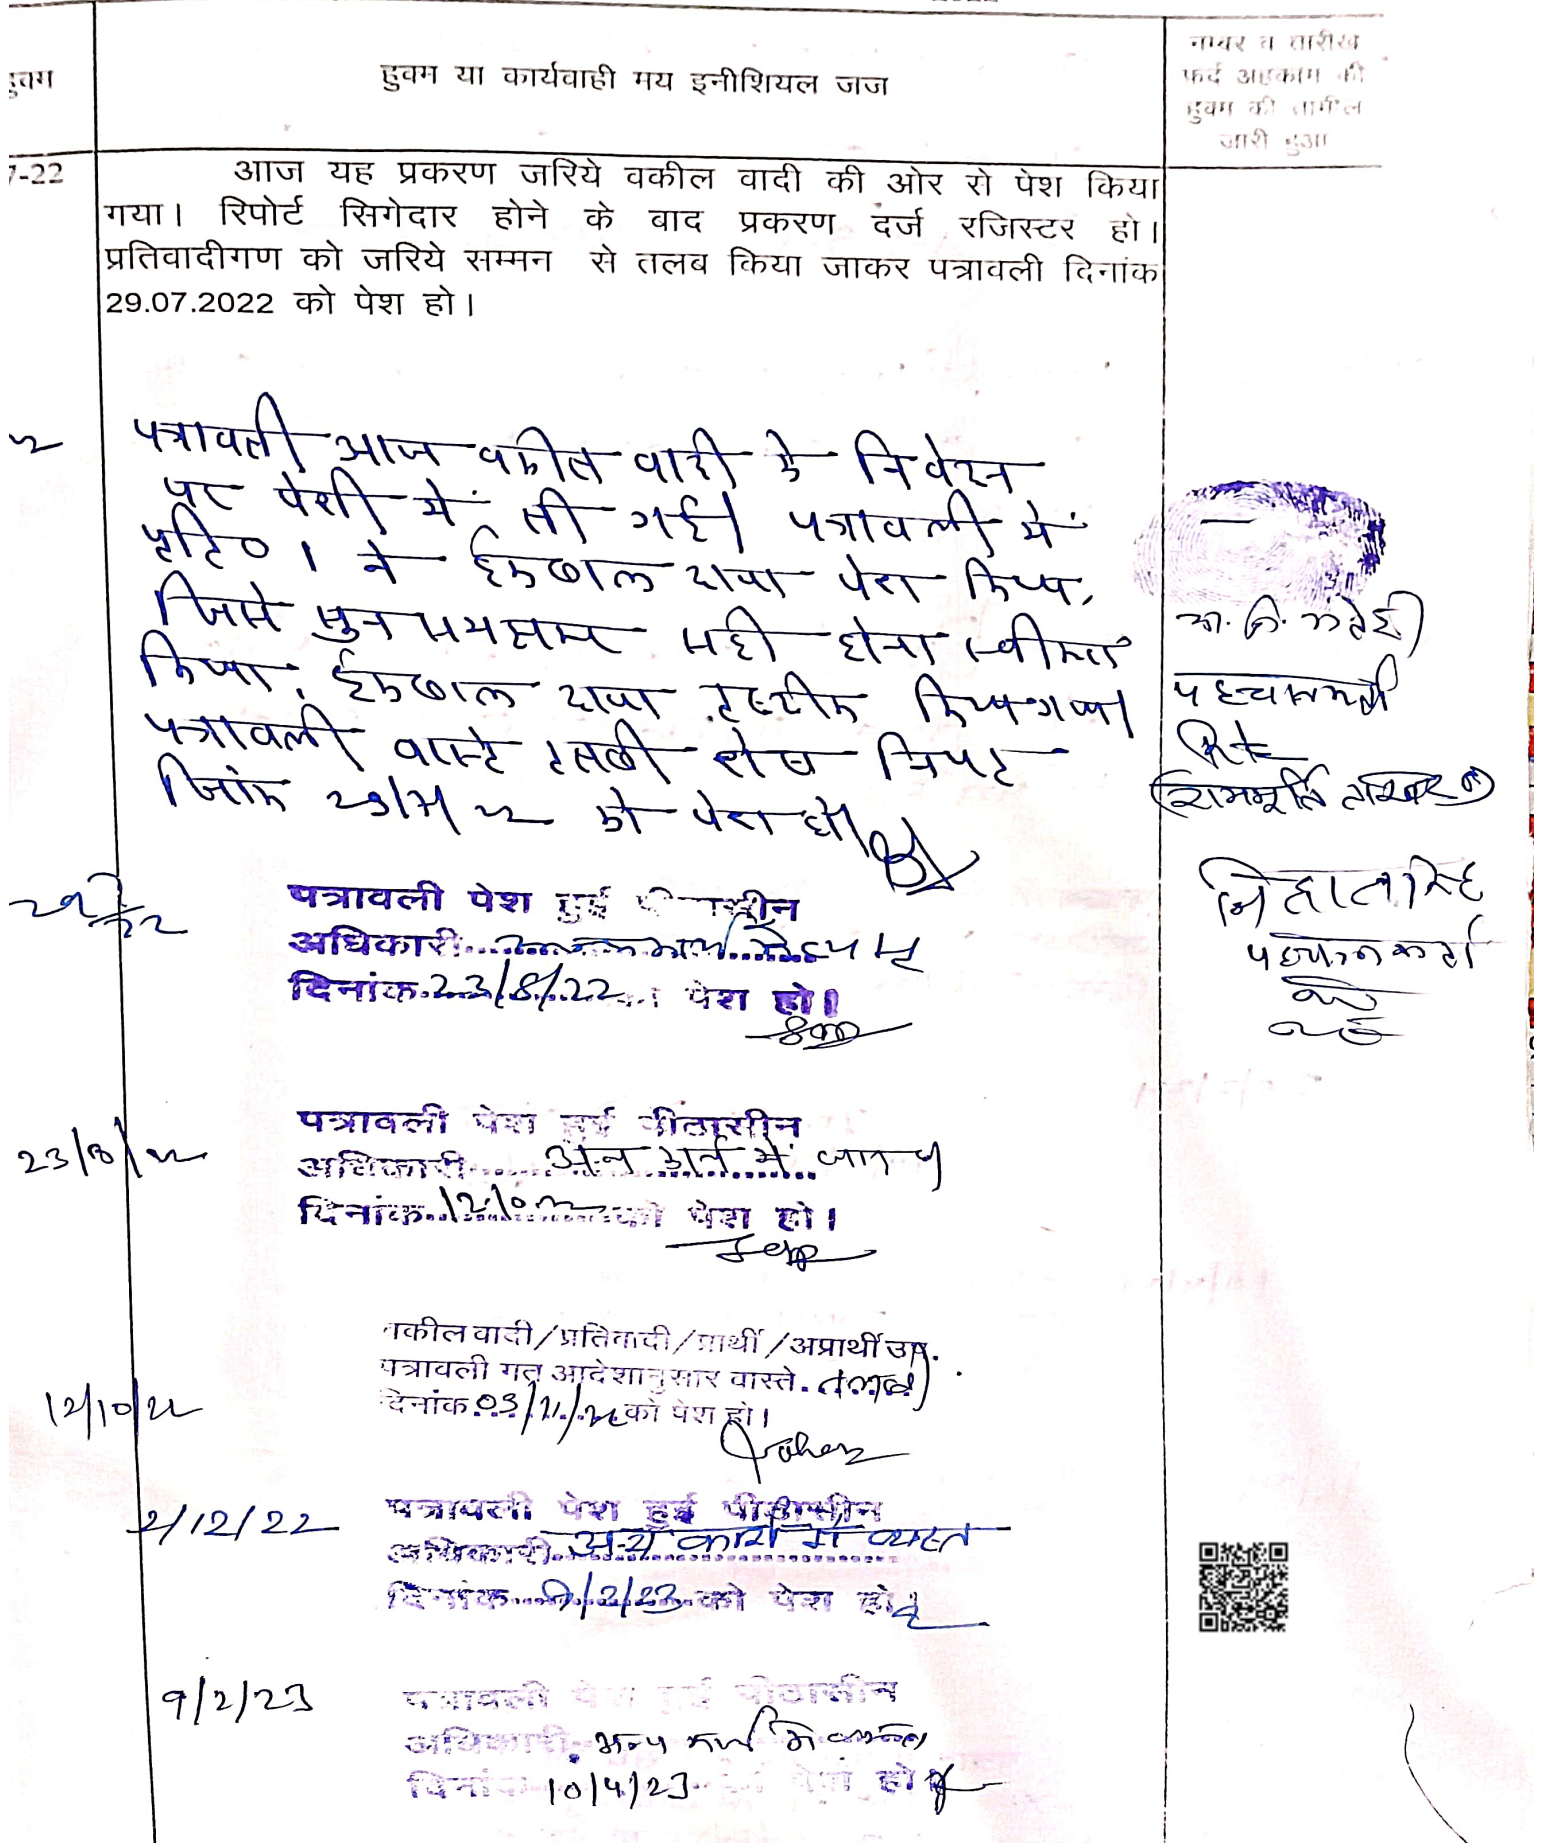 हुक्म या कार्यवाही मय इनीशियल जज
नम्बर व तारीख
फर्द अहकाम की
हुक्म की तामील
जारी हुआ
7-22
आज यह प्रकरण जरिये वकील वादी की ओर से पेश किया
गया। रिपोर्ट सिगेदार होने के बाद प्रकरण दर्ज रजिस्टर हो।
प्रतिवादीगण को जरिये सम्मन से तलब किया जाकर पत्रावली दिनांक
29.07.2022 को पेश हो।
पत्रावली आज वकील वादी के निवेदन
पर पेशी में ली गई। पत्रावली में
1 ने दावा पेश किया,
जिसे सही होना स्वीकार
किया। दावा तस्दीक किया गया।
पत्रावली वास्ते तलबी शेष
दिनांक 29/7/22 को पेश हो।
पहचानकर्ता
निहालसिंह
पहचानकर्ता
पत्रावली पेश हुई पीठासीन
अधिकारी
दिनांक 23/8/22 को पेश हो।
23/8/22
पत्रावली पेश हुई पीठासीन
अधिकारी अन्य कार्य में व्यस्त
दिनांक 12/10/22 को पेश हो।
वकील वादी/प्रतिवादी/प्रार्थी/अप्रार्थी उप.
पत्रावली गत आदेशानुसार वास्ते तलबी
12/10/22
दिनांक 03/11/22 को पेश हो।
2/12/22
पत्रावली पेश हुई पीठासीन
अधिकारी अन्य कार्य में व्यस्त
दिनांक 9/2/23 को पेश हो।
9/2/23
पत्रावली पेश हुई पीठासीन
अधिकारी अन्य कार्य में व्यस्त
दिनांक 10/4/23 को पेश हो